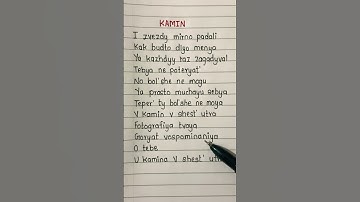 KAMIN
I zvezdy mirno padali
Kak budto dlya menya
Ya kazhdyy raz zagadyval
Tebya ne poteryat'
No bol'she ne mogu
Ya prosto muchayu sebya
Teper' ty bol'she ne moya
V Kamin v shest' utra
Fotografiya tvoya
Goryat vospominaniya
O tebe
U Kamina V shest' utra